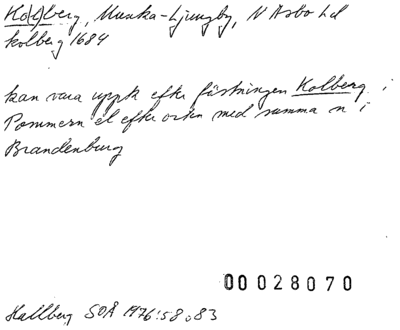 Ko(l)berg, Munka-Ljungby, N Åsbo hd
kolberg 1684
kan vara uppk efter fästningen Kolberg i
Pommern el efter orten med samma n i
Brandenburg
00028070
Hallberg SOÅ 1976:58, 83